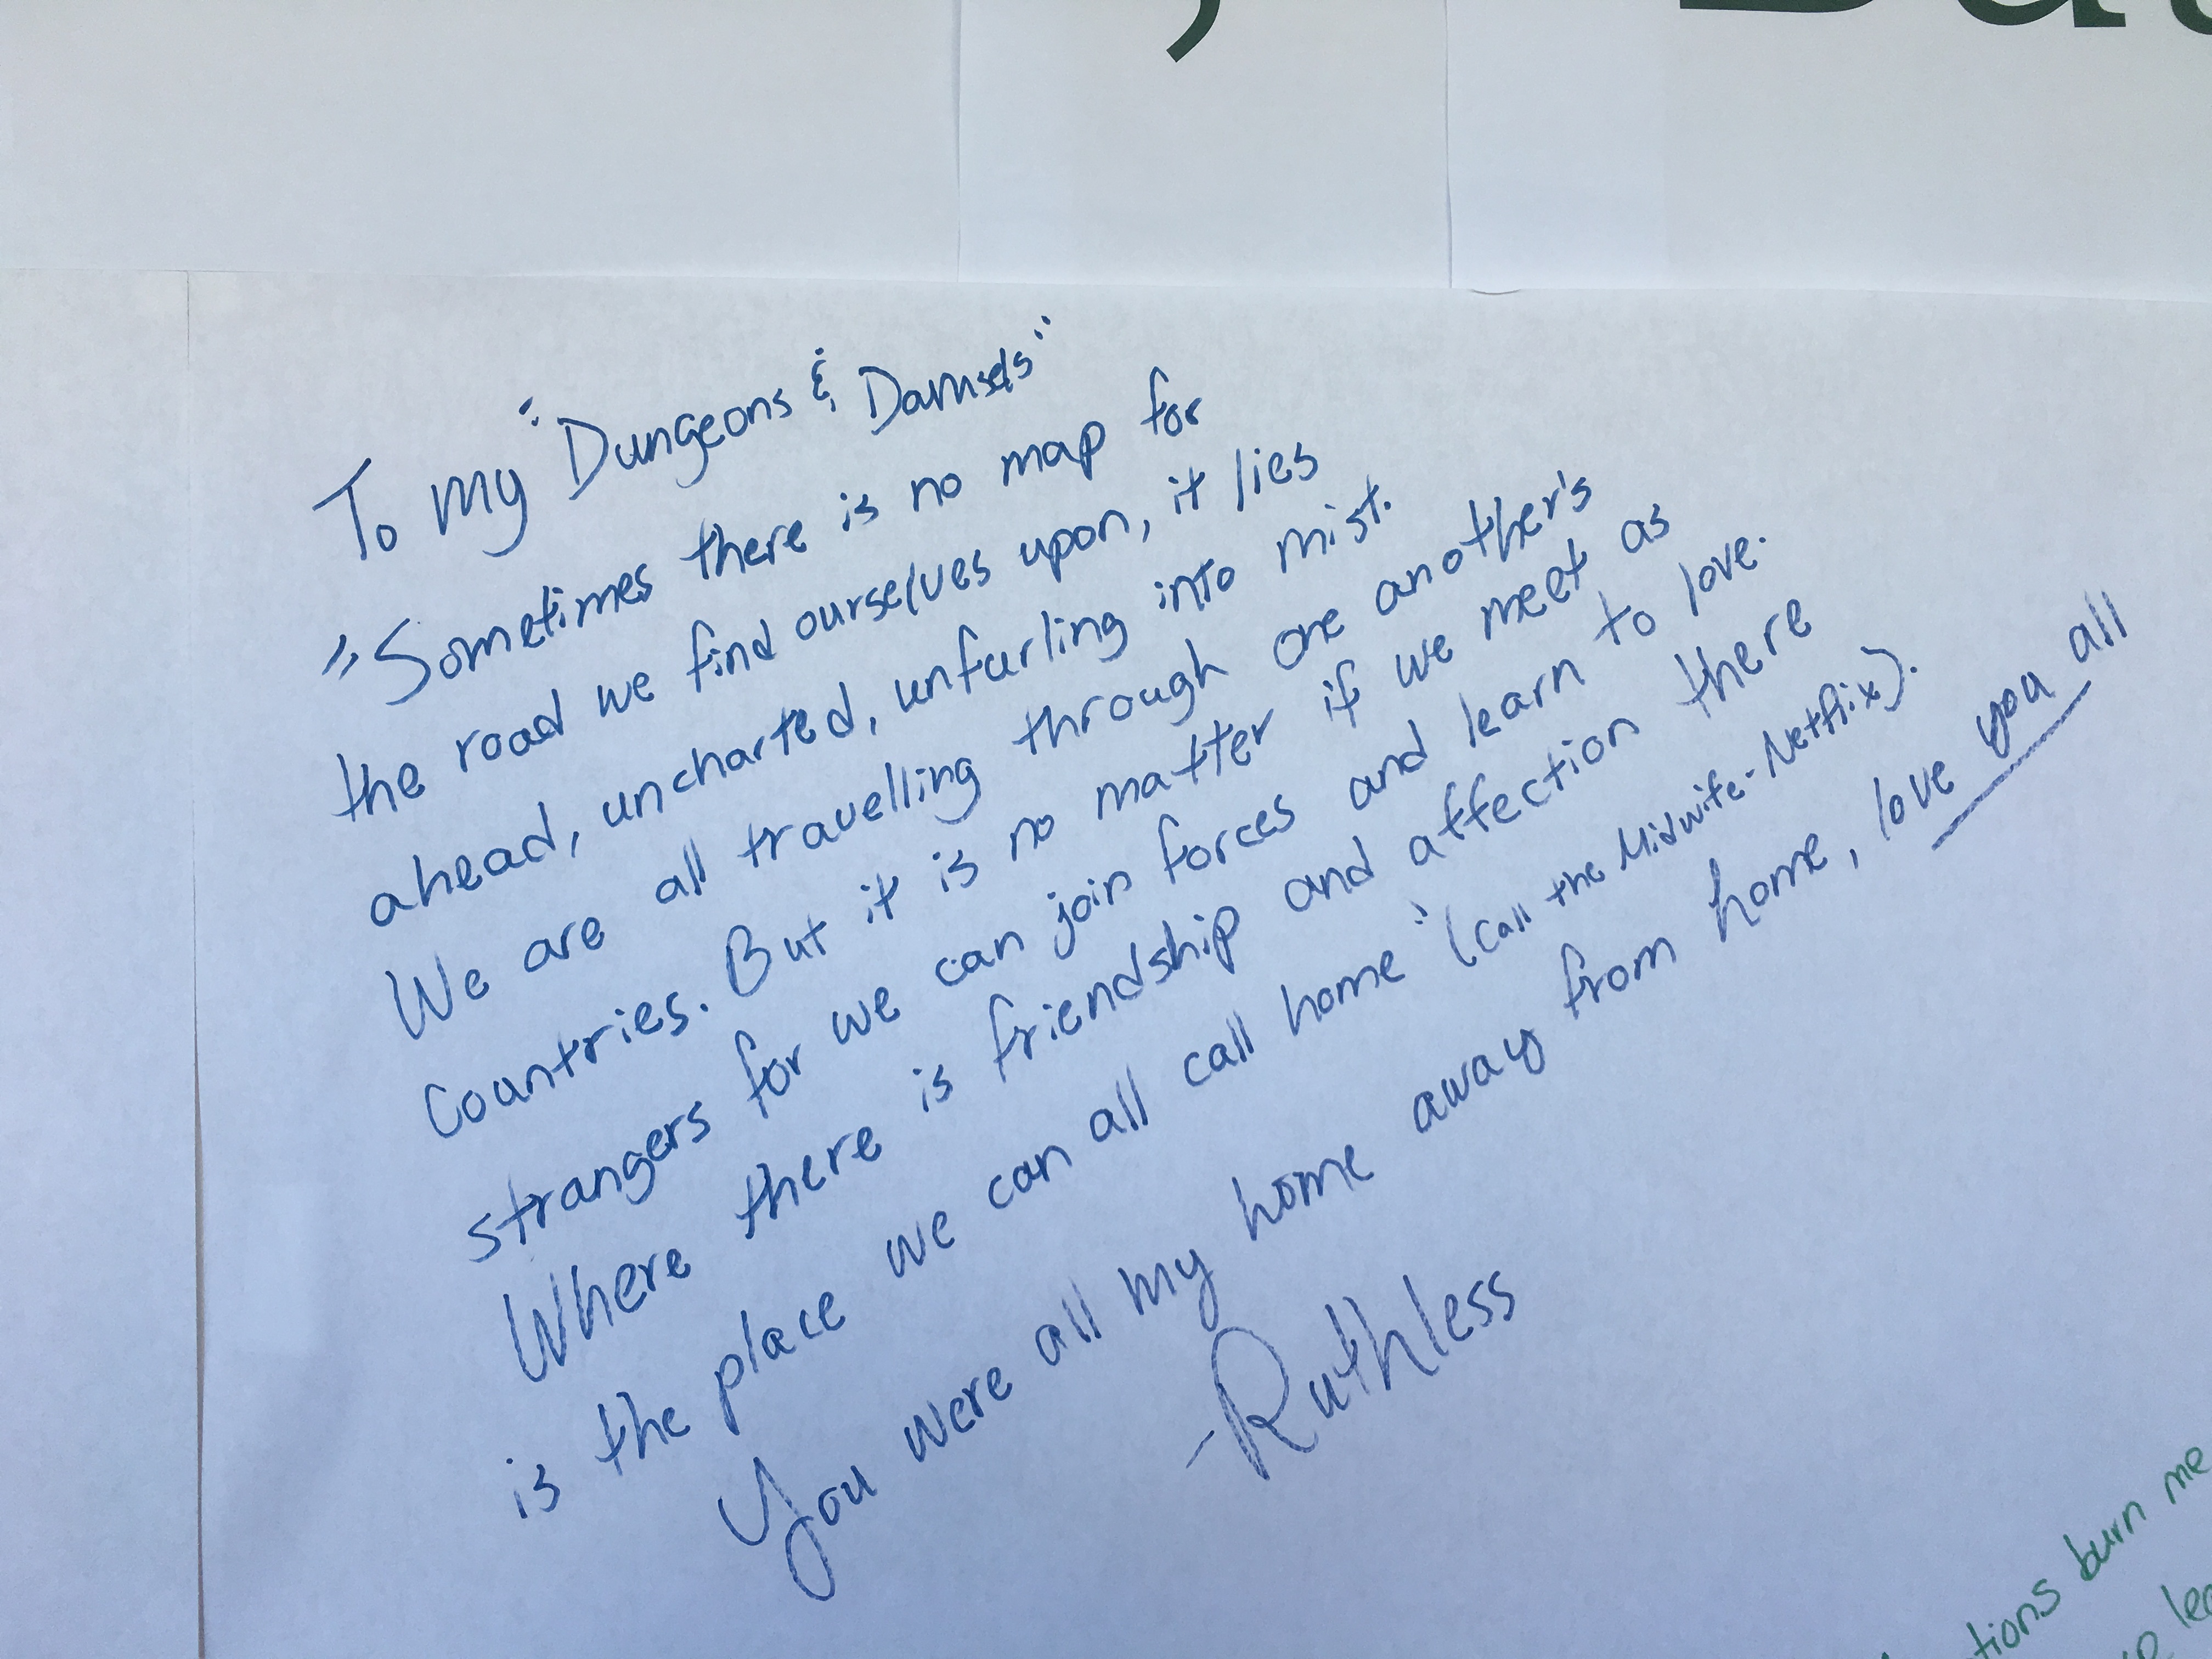 To my "Dungeons & Damsels"
"Sometimes there is no map for
the road we find ourselves upon, it lies
ahead, uncharted, unfurling into mist.
We are all travelling through one another's
Countries. But it is no matter if we meet as
strangers for we can join forces and learn to love.
Where there is friendship and affection there
is the place we can all call home" (Call the Midwife - Netflix).
You were all my home away from home, love you all
-Ruthless
burn me